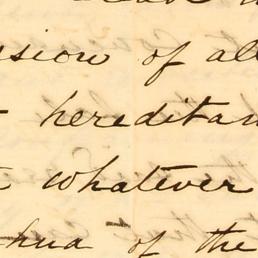 ssion of all
hereditam
whatever
hua of the